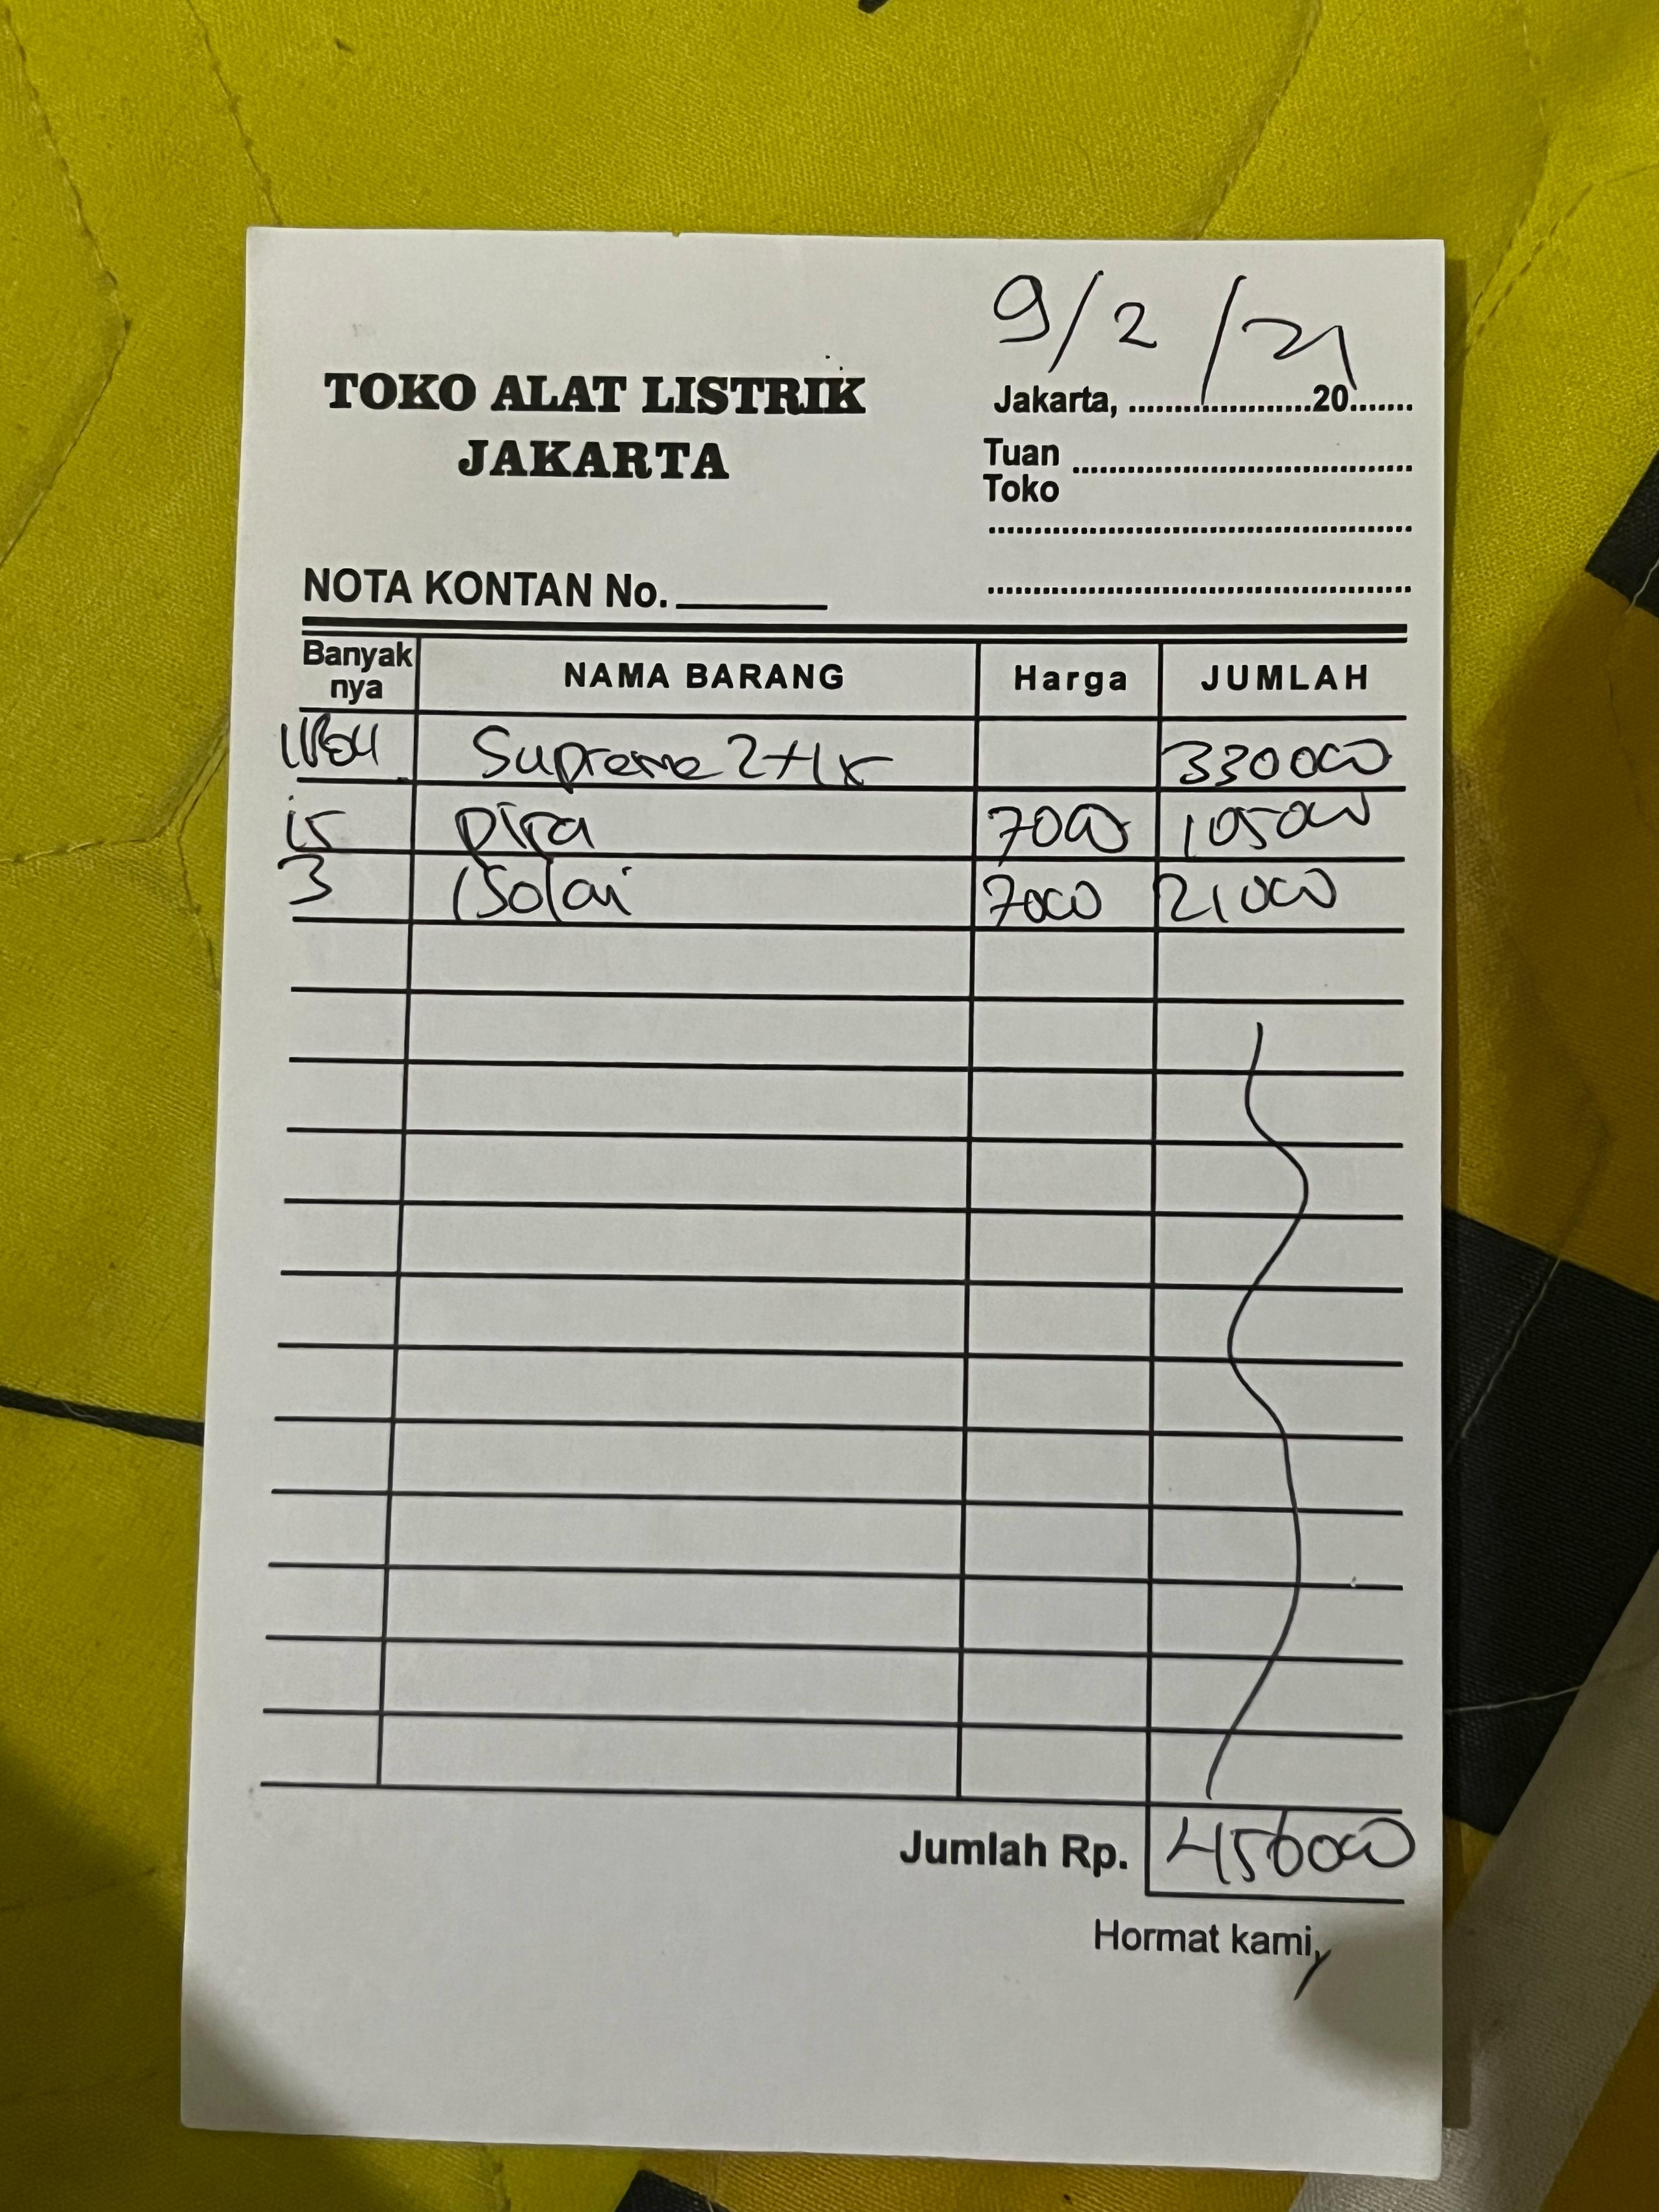 9/2/21
TOKO ALAT LISTRIK
JAKARTA
Jakarta, ........................20.......
Tuan
Toko
NOTA KONTAN No.
Banyak nya NAMA BARANG Harga JUMLAH
Supreme 330000
15 pipa 7000 105000
3 isolai 7000 21000
Jumlah Rp. 456000
Hormat kami,